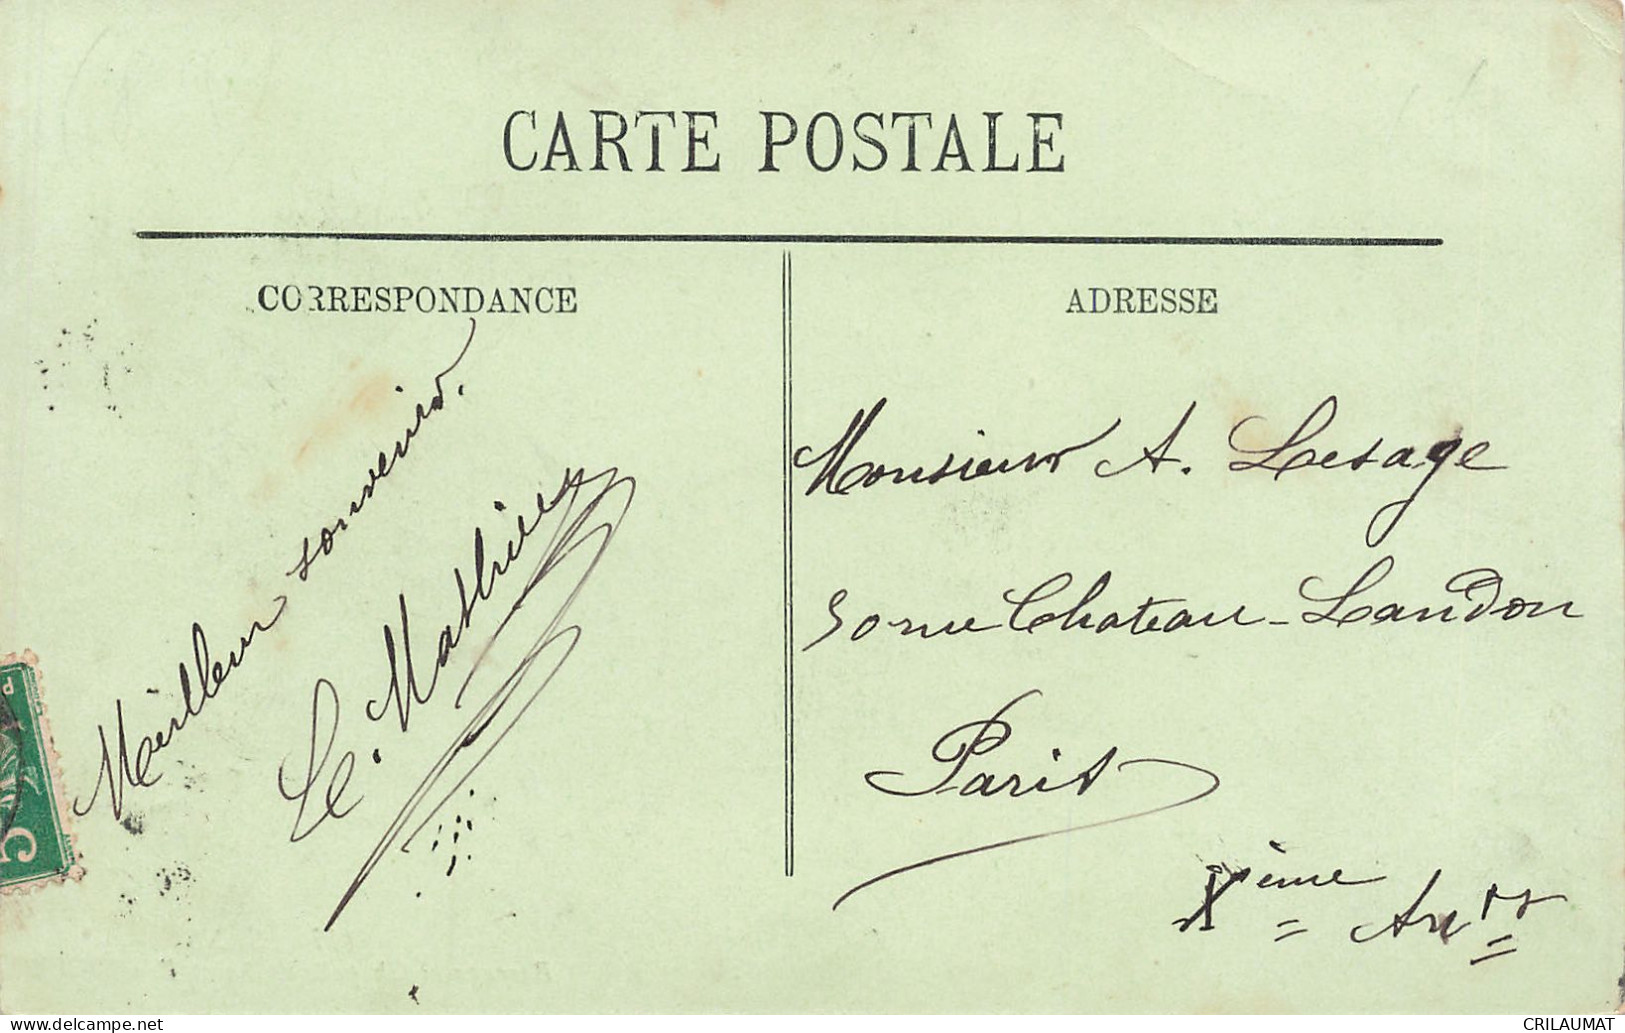 CARTE POSTALE
CORRESPONDANCE
ADRESSE
Meilleur souvenir.
Le. Mathieu
Monsieur A. Lesage
30 rue Chateau-Landon
Paris
Xème Arr
5
delcampe.net
CRILAUMAT